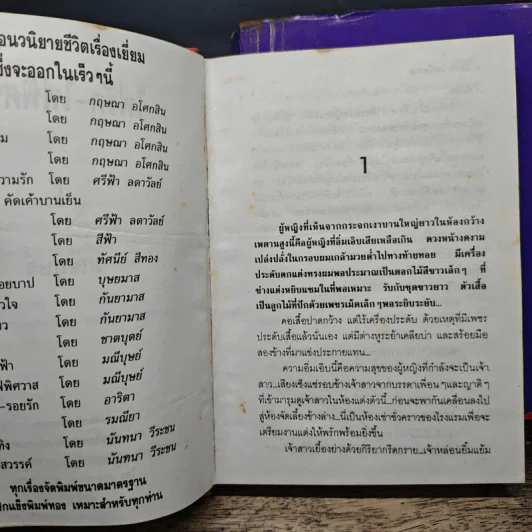 อนวนิยายชีวิตเรื่องเยี่ยม
ซึ่งจะออกในเร็วๆนี้
โดย กฤษณา อโศกสิน
โดย กฤษณา อโศกสิน
ม โดย กฤษณา อโศกสิน
โดย กฤษณา อโศกสิน
วามรัก โดย ศรีฟ้า ลดาวัลย์
คัดเค้าบานเย็น
โดย ศรีฟ้า ลดาวัลย์
โดย สีฟ้า
โดย ทัศนีย์ สีทอง
อยบาป โดย บุษยมาส
วใจ โดย กันยามาส
าว โดย กันยามาส
โดย ชาตบุตย์
ฟ้า โดย มณีบุษย์
พิศวาส โดย มณีบุษย์
-รอยรัก โดย อาริตา
โดย รมณียา
ทิง โดย นันทนา วีระชน
สวรรค์ โดย นันทนา วีระชน
ทุกเรื่องจัดพิมพ์ขนาดมาตรฐาน
ปกแข็งพิมพ์ทอง เหมาะสำหรับทุกท่าน
1
ผู้หญิงที่เห็นจากกระจกเงาบานใหญ่ยาวในห้องกว้าง
เพดานสูงนี้คือผู้หญิงที่อิ่มเอิบเสียเหลือเกิน ดวงหน้างดงาม
เปล่งปลั่งในกรอบผมเกล้ามวยต่ำไปทางท้ายทอย มีเครื่อง
ประดับตกแต่งทรงผมพอประมาณเป็นดอกไม้สีขาวเล็กๆ ที่
ช่างแต่งหยิบแซมในที่พอเหมาะ รับกับชุดขาวยาว ตัวเสื้อ
เป็นลูกไม้ที่ปักด้วยเพชรเม็ดเล็กๆพอระยิบระยับ...
คอเสื้อปาดกว้าง แต่ไร้เครื่องประดับ ด้วยเหตุที่มีเพชร
ประดับเสื้อแล้วนั่นเอง แต่มีต่างหูระย้าเคลียบ่า และสร้อยมือ
สองข้างที่มาแข่งประกายแทน...
ความอิ่มเอิบนี้คือความสุขของผู้หญิงที่กำลังจะเป็นเจ้า
สาว...เสียงเซ็งแซ่รอบข้างเจ้าสาวจากบรรดาเพื่อนๆและญาติๆ
ที่เข้ามารุมดูเจ้าสาวในห้องแต่งตัวนี้...ก่อนจะพากันเคลื่อนลงไป
สู่ห้องจัดเลี้ยงข้างล่าง...นี่เป็นห้องเช่าชั่วคราวของโรงแรมเพื่อจะ
เตรียมงานแต่งให้พรักพร้อมยิ่งขึ้น
เจ้าสาวเยื้องย่างด้วยกิริยากรีดกราย...เจ้าหล่อนยิ้มแย้ม